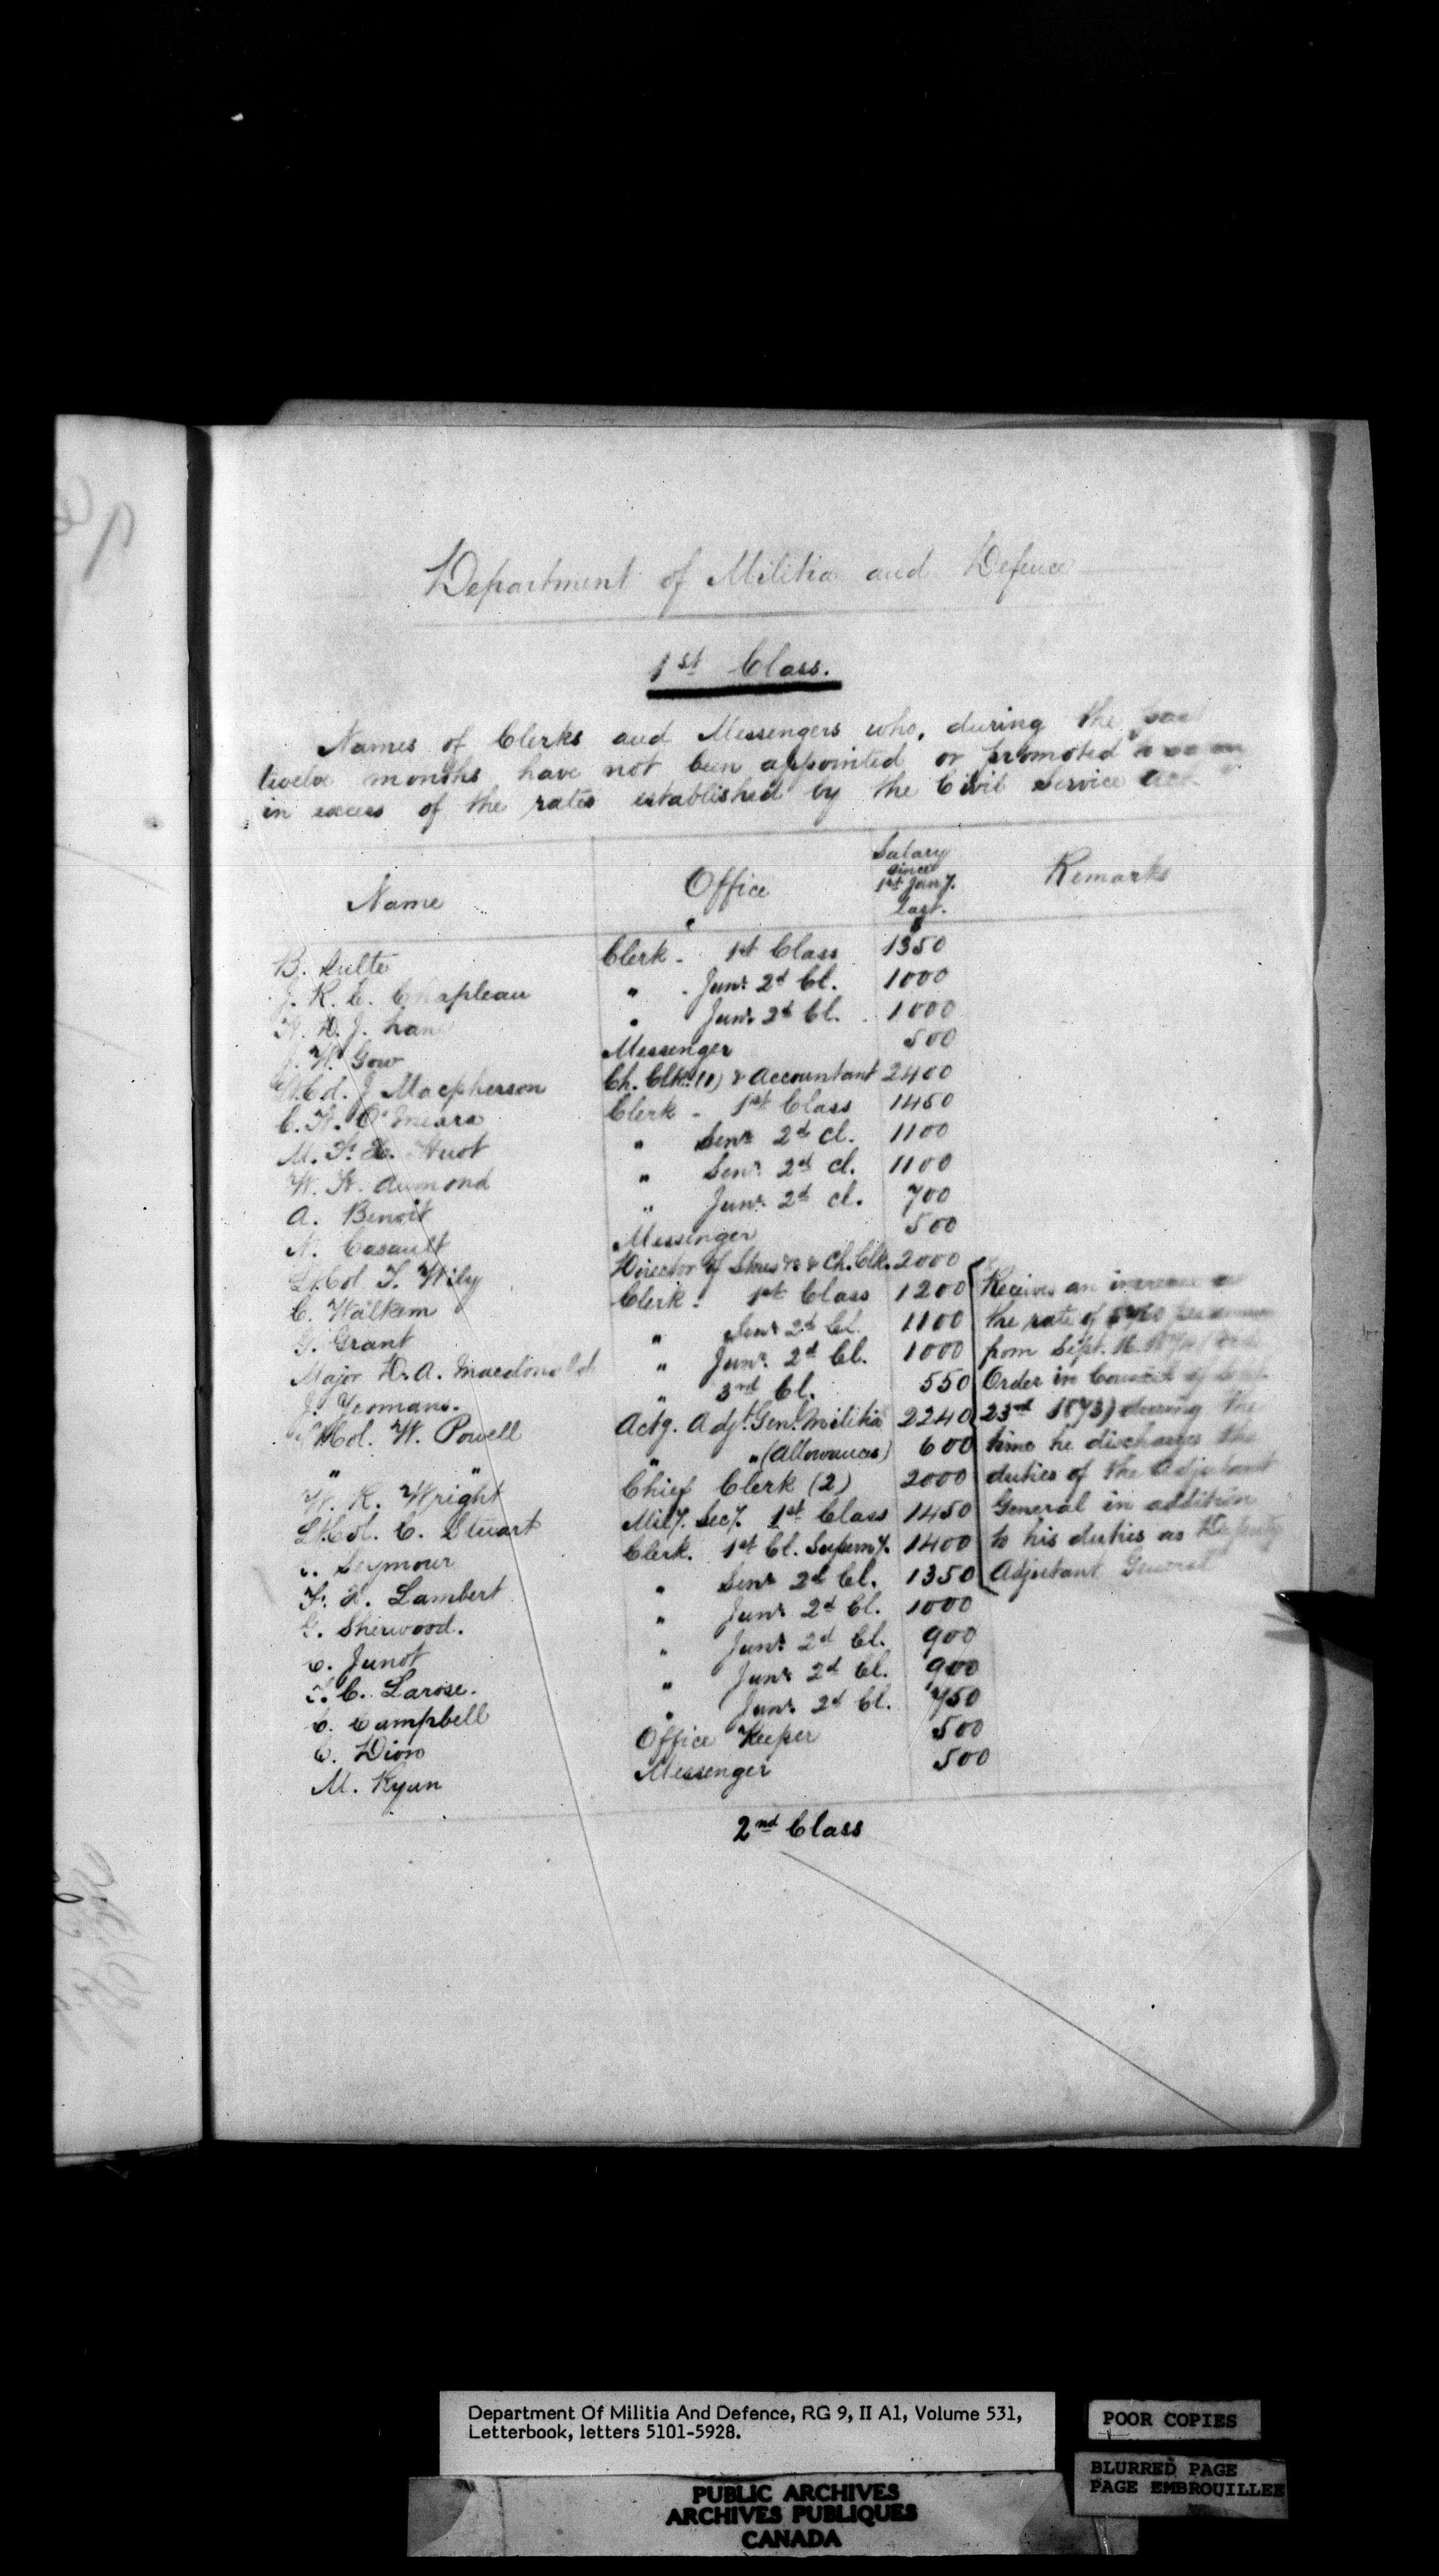 Department of Militia and Defence
1st Class.
Names of Clerks and Messengers who, during the past
twelve months have not been appointed or promoted
in excess of the rates established by the Civil Service Act
Name Office Salary since 1st Jany. last. Remarks
$
B. Sulte Clerk - 1st Class 1350
J. R. E. Chapleau " - Junr. 2d Cl. 1000
H. D. J. Lane " Junr. 2d Cl. 1000
J. W. Gow Messenger 500
Lt. Col. J. Macpherson Ch. Clk. (1) & Accountant 2400
C. H. O'Meara Clerk - 1st Class 1450
M. F. X. Huot " Senr. 2d Cl. 1100
W. H. Aumond " Senr. 2d Cl. 1100
A. Benoit " Junr. 2d Cl. 700
N. Casault Messenger 500
Lt. Col. T. Wily Director of Stores &c & Ch. Clk. 2000
C. Walkem Clerk - 1st Class 1200 Receives an increase
G. Grant " Senr. 2d Cl. 1100 the rate of per annum
Major D. A. Macdonald " Junr. 2d Cl. 1000 from Sept.
J. Yeomans. " 3rd Cl. 550 Order in Council of
Lt. Col. W. Powell Actg. Adjt. Genl. Militia 2240 23rd 1873) during the
" " " " (Allowances) 600 time he discharges the
W. R. Wright Chief Clerk (2) 2000 duties of the Adjutant
Lt. Col. C. Stuart Mily. Secy. 1st Class 1450 General in addition
Seymour Clerk. 1st Cl. Supery. 1400 to his duties as Deputy
F. X. Lambert " Senr. 2d Cl. 1350 Adjutant General
G. Sherwood. " Junr. 2d Cl. 1000
C. Junot " Junr. 2d Cl. 900
T. C. Larose. " Junr. 2d Cl. 900
C. Campbell " Junr. 2d Cl. 750
C. Dion Office Keeper 500
M. Ryan Messenger 500
2nd Class
Department Of Militia And Defence, RG 9, II A1, Volume 531,
Letterbook, letters 5101-5928.
POOR COPIES
BLURRED PAGE
PAGE EMBROUILLEE
PUBLIC ARCHIVES
ARCHIVES PUBLIQUES
CANADA